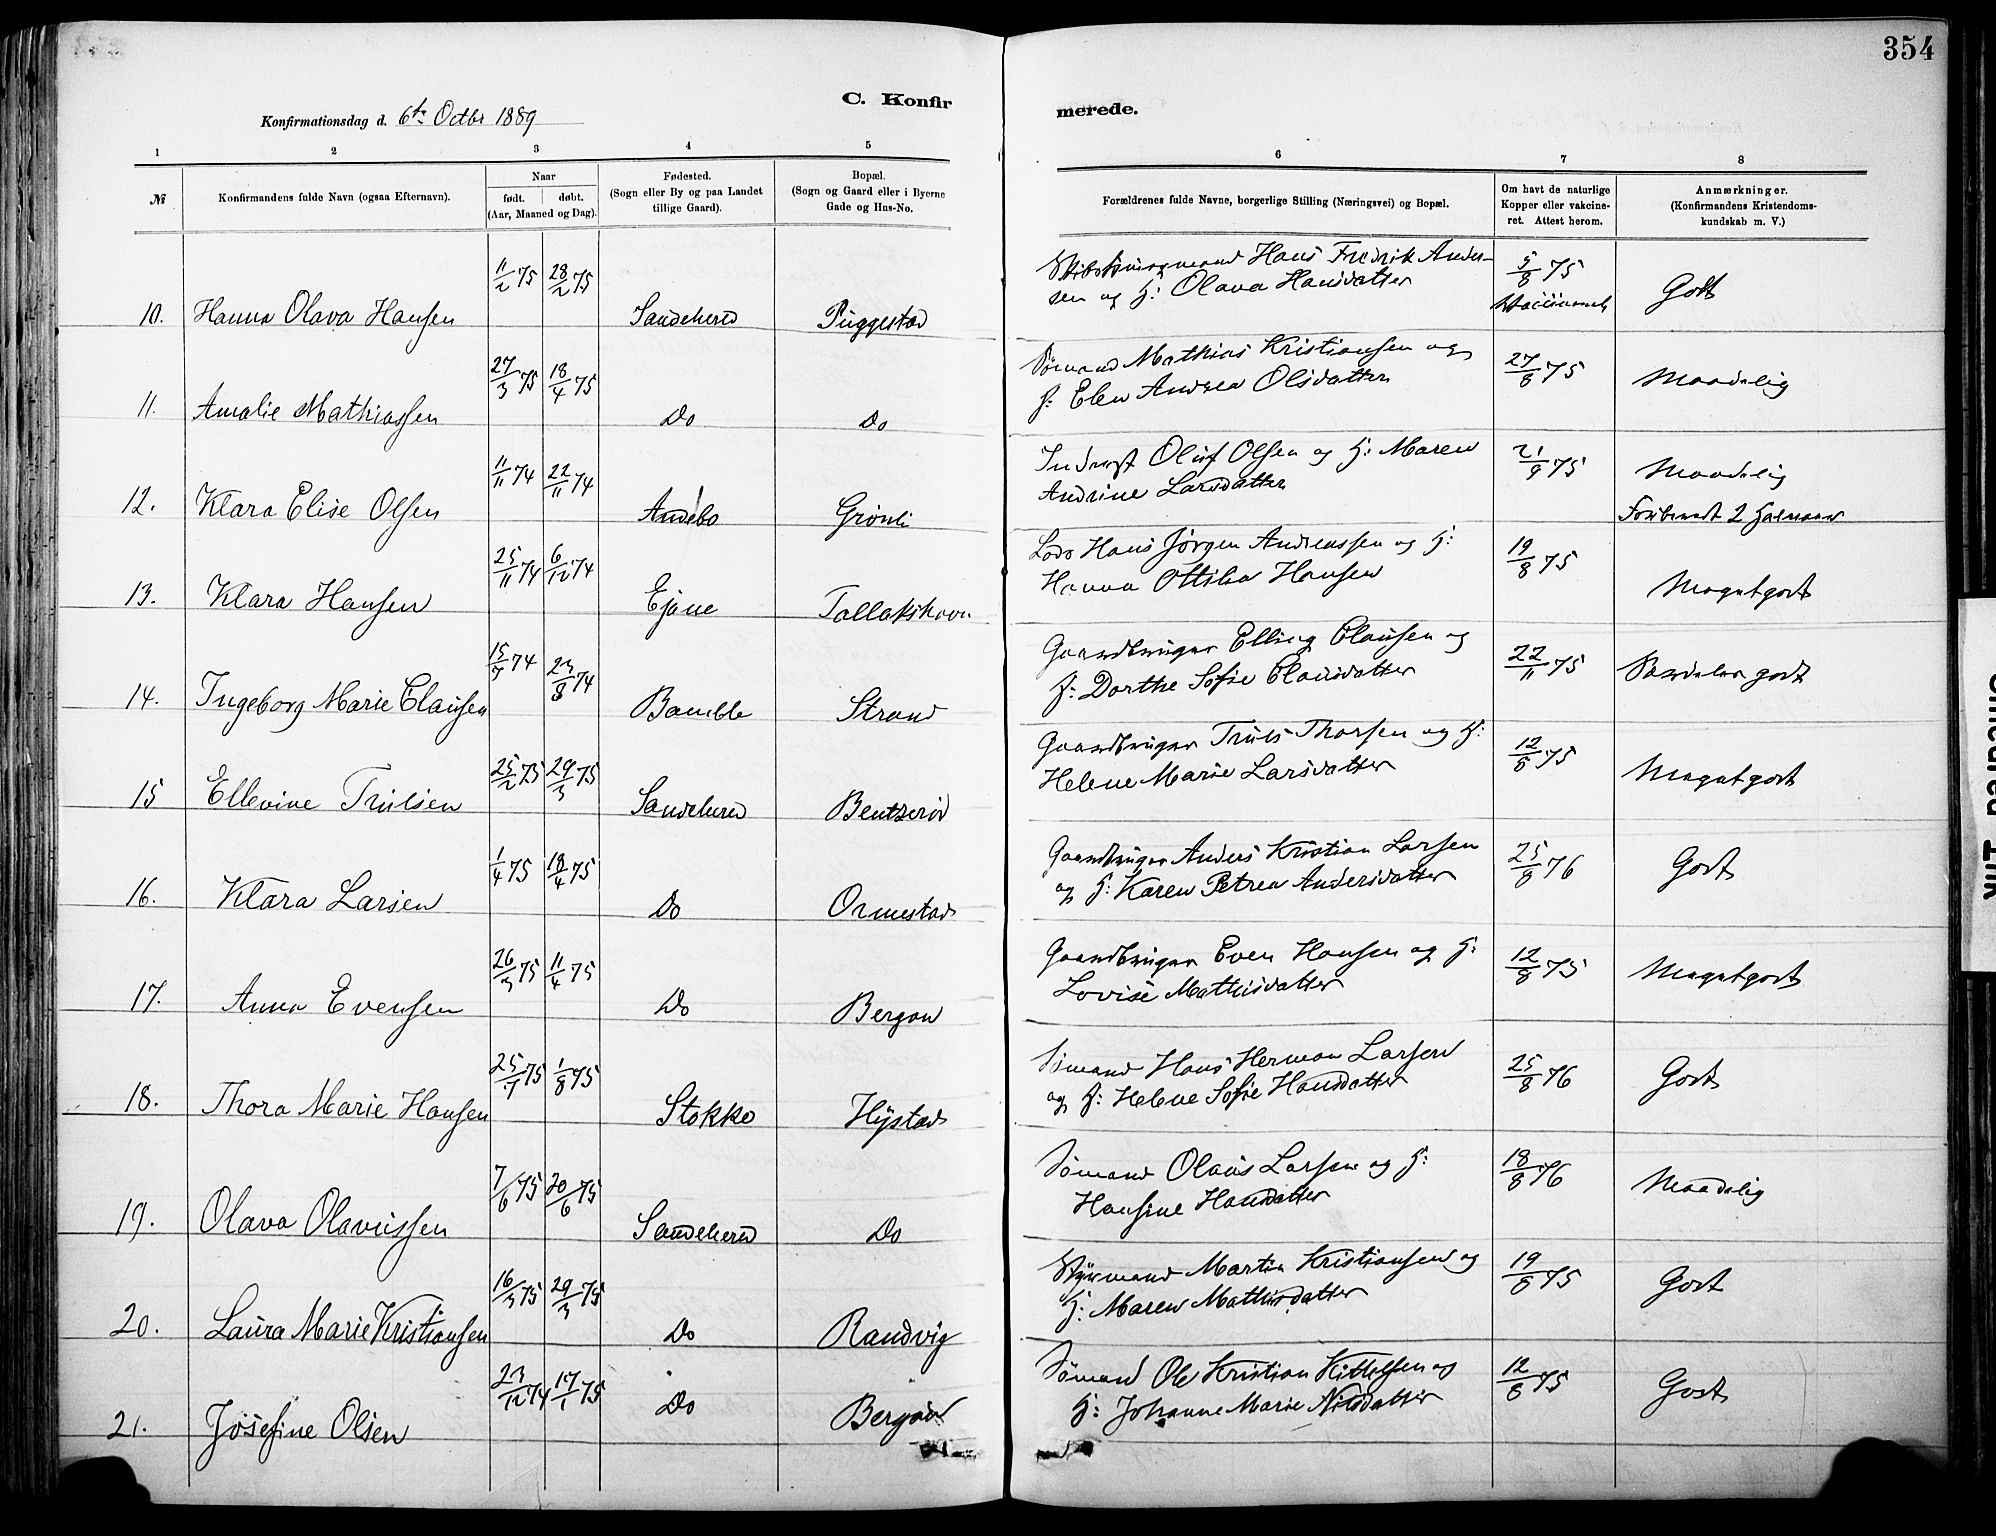 354
C. Konfirmerede.
Konfirmationsdag d. 6te Octbr 1889
1 2 3 4 5 6 7 8
№ Konfirmandens fulde Navn (ogsaa Efternavn).
Naar
født. døbt.
(Aar, Maaned og Dag).
Fødested.
(Sogn eller By og paa Landet
tillige Gaard).
Bopæl.
(Sogn og Gaard eller i Byerne
Gade og Hus-No.
Forældrenes fulde Navne, borgerlige Stilling (Næringsvei) og Bopæl.
Om havt de naturlige
Kopper eller vakcine-
ret. Attest herom.
Anmærkninger.
(Konfirmandens Kristendoms-
kundskab m. V.)
10. Hanna Olava Hansen 11/2 75 28/2 75 Sandeherred Puggestad
Skibstømmermand Hans Fredrik Ander-
sen og H: Olava Hansdatter 5/8 75 Godt
11. Amalie Mathiassen 27/3 75 18/4 75 Do Do
Sømand Mathias Kristiansen og
H: Elen Andrea Olsdatter 27/8 75 Maadelig
12. Klara Elise Olsen 11/11 74 22/11 74 Andebo Grønli
Inderst Oluf Olsen og H: Maren
Andrine Larsdatter 21/9 75 Maadelig
Forberedt 2 Halvaar
13. Klara Hansen 25/11 74 6/12 74 Ejøne Tallakshavn
Lods Hans Jørgen Andreassen og H:
Hanna Ottilia Hansen 19/8 75 Megetgodt
14. Ingeborg Marie Clausen 15/7 74 23/8 74 Bamble Strand
Gaardbruger Elling Clausen og
H: Dorthe Sofie Clausdatter 22/11 75 Særdeles godt
15 Ellevine Trulsen 25/2 75 29/3 75 Sandeherred Bentserød
Gaardbruger Truls Thorsen og H:
Helene Marie Larsdatter 12/8 75 Megetgodt
16. Klara Larsen 1/4 75 18/4 75 Do Ormestad
Gaardbruger Anders Kristian Larsen
og H: Karen Petrea Andersdatter 25/8 76 Godt
17. Anna Evensen 26/3 75 11/4 75 Do Bergan
Gaardbruger Even Hansen og H:
Lovise Mathisdatter 12/8 75 Megetgodt
18. Thora Marie Hansen 25/7 75 1/8 75 Stokke Hystad
Sømand Hans Herman Larsen
og H: Helene Sofie Hansdatter 25/8 76 Godt
19. Olava Olavussen 7/6 75 20/6 75 Sandeherred Do
Sømand Olaus Larsen og H:
Hansine Hansdatter 18/8 76 Maadelig
20. Laura Marie Kristiansen 16/3 75 29/3 75 Do Randvig
Styrmand Martin Kristiansen og
H: Maren Mathisdatter 19/8 75 Godt
21. Josefine Olsen 23/12 74 17/1 75 Do Bergan
Sømand Ole Kristian Kittelsen og
H: Johanne Marie Nilsdatter 12/8 75 Godt